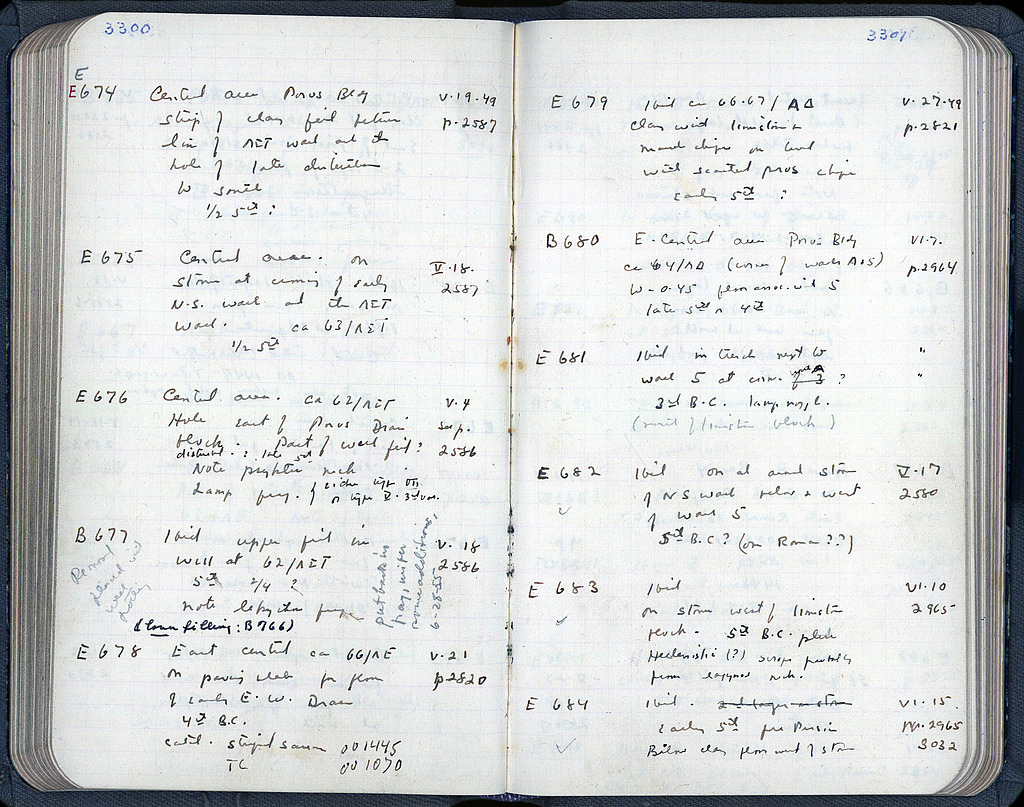 3300
E
E674 Central area Poros Bldg V·19·49
strip of clay fill before p.2587
line of ΛΕΤ wall at the
hole of late disturbance
to south
1/2 5th ?
E 675 Central area. on V·18.
stones at coming of early 2587
N.S. wall at the ΛΕΤ
wall. ca 63/ΛΕΤ
1/2 5th
E 676 Central area. ca 62/ΛΕΤ V·4
Hole east of Poros Drain sup.
block. Part of well fill? 2586
disturbed. ? late 5th
Note neck
Lamp frag. of either type VII
or type V. 3rd
B 677 Ibid upper fill in V·18
well at 62/ΛΕΤ 2586
5th 2/4 ?
note frag
(lower filling: B766)
put back in
bag, with
some additions,
6-28-55
E 678 East central ca 66/ΛΕ V·21
on paving slabs for floor p2820
of early E.W. Drain
4th B.C.
catd. striped saucer 001445
TC 001070
3301
E 679 Ibid ca 66·67/ΛΔ V·27·49
clay with limestone p.2821
marl chips on level
with scanted poros chips
early 5th ?
B 680 E·Central area Poros Bldg VI·7.
ca 64/ΛΔ (corner of walls A & 5) p.2964
W - 0.45 floor assoc. with 5
late 5th or 4th
E 681 Ibid in trench next to "
wall 5 at corn. ? "
3rd B.C. lamp
(south of limestone block)
E 682 Ibid on and around stones V·17
of N S wall below & west 2580
of wall 5
5th B.C? (or Roman??)
E 683 Ibid VI·10
on stones west of limestone 2965
block. 5th B.C. plus
Hellenistic (?) scraps probably
from neck.
E 684 Ibid. VI·15.
early 5th pre Persian pp.2965
Below clay floor west of stone 3032